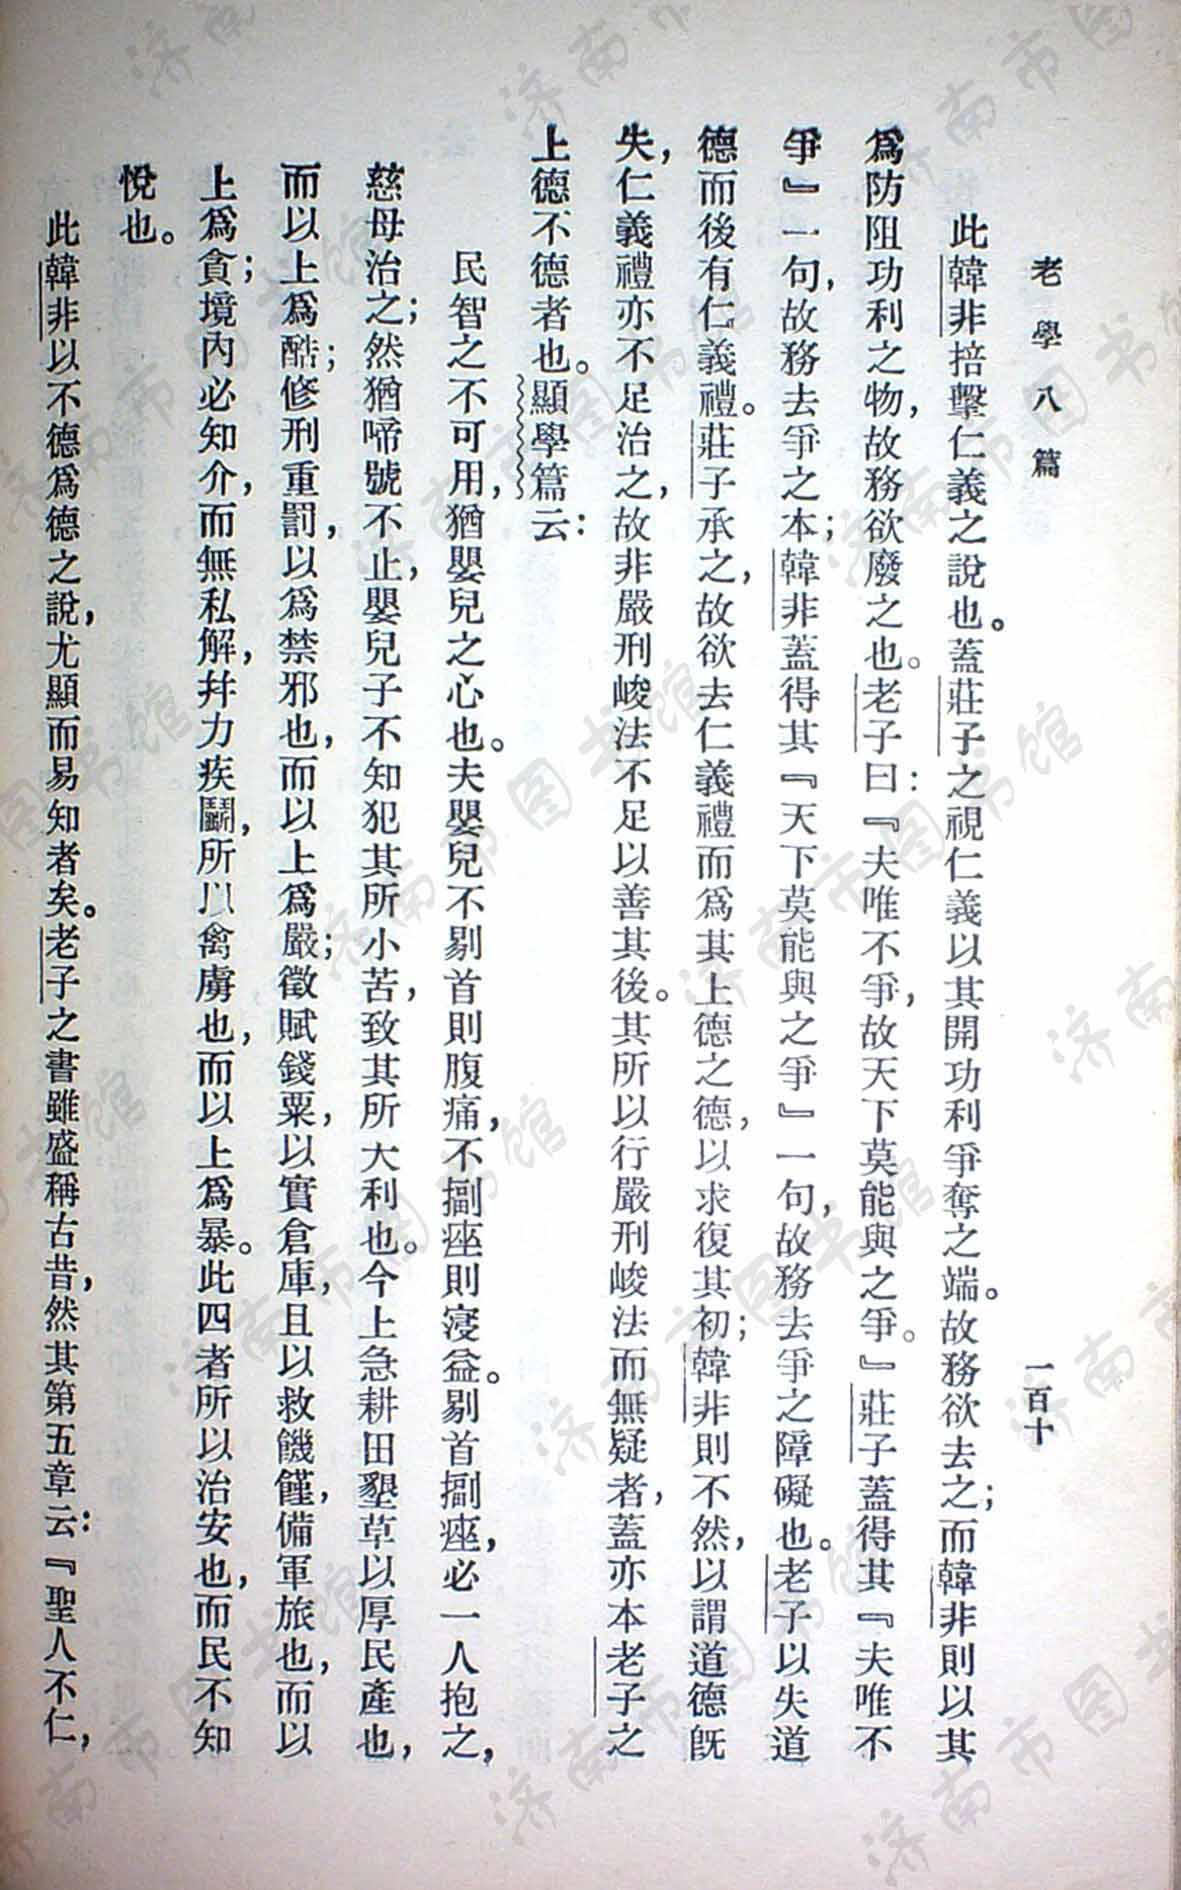 老學八篇
一百十
此韓非掊擊仁義之說也。蓋莊子之視仁義以其開功利爭奪之端。故務欲去之；而韓非則以其
爲防阻功利之物，故務欲廢之也。老子曰：『夫唯不爭，故天下莫能與之爭。』莊子蓋得其『夫唯不
爭』一句，故務去爭之本；韓非蓋得其『天下莫能與之爭』一句，故務去爭之障礙也。老子以失道
德而後有仁義禮。莊子承之，故欲去仁義禮而爲其上德之德，以求復其初；韓非則不然，以謂道德旣
失，仁義禮亦不足治之，故非嚴刑峻法不足以善其後。其所以行嚴刑峻法而無疑者，蓋亦本老子之
上德不德者也。顯學篇云：
民智之不可用，猶嬰兒之心也。夫嬰兒不剔首則腹痛，不㨽痤則寖益。剔首㨽痤，必一人抱之，
慈母治之；然猶啼號不止，嬰兒子不知犯其所小苦，致其所大利也。今上急耕田墾草以厚民產也，
而以上爲酷；修刑重罰，以爲禁邪也，而以上爲嚴；徵賦錢粟，以實倉庫，且以救饑饉，備軍旅也，而以
上爲貪；境內必知介，而無私解，幷力疾鬭，所以禽虜也，而以上爲暴。此四者所以治安也，而民不知
悅也。
此韓非以不德爲德之說，尤顯而易知者矣。老子之書雖盛稱古昔，然其第五章云：『聖人不仁，